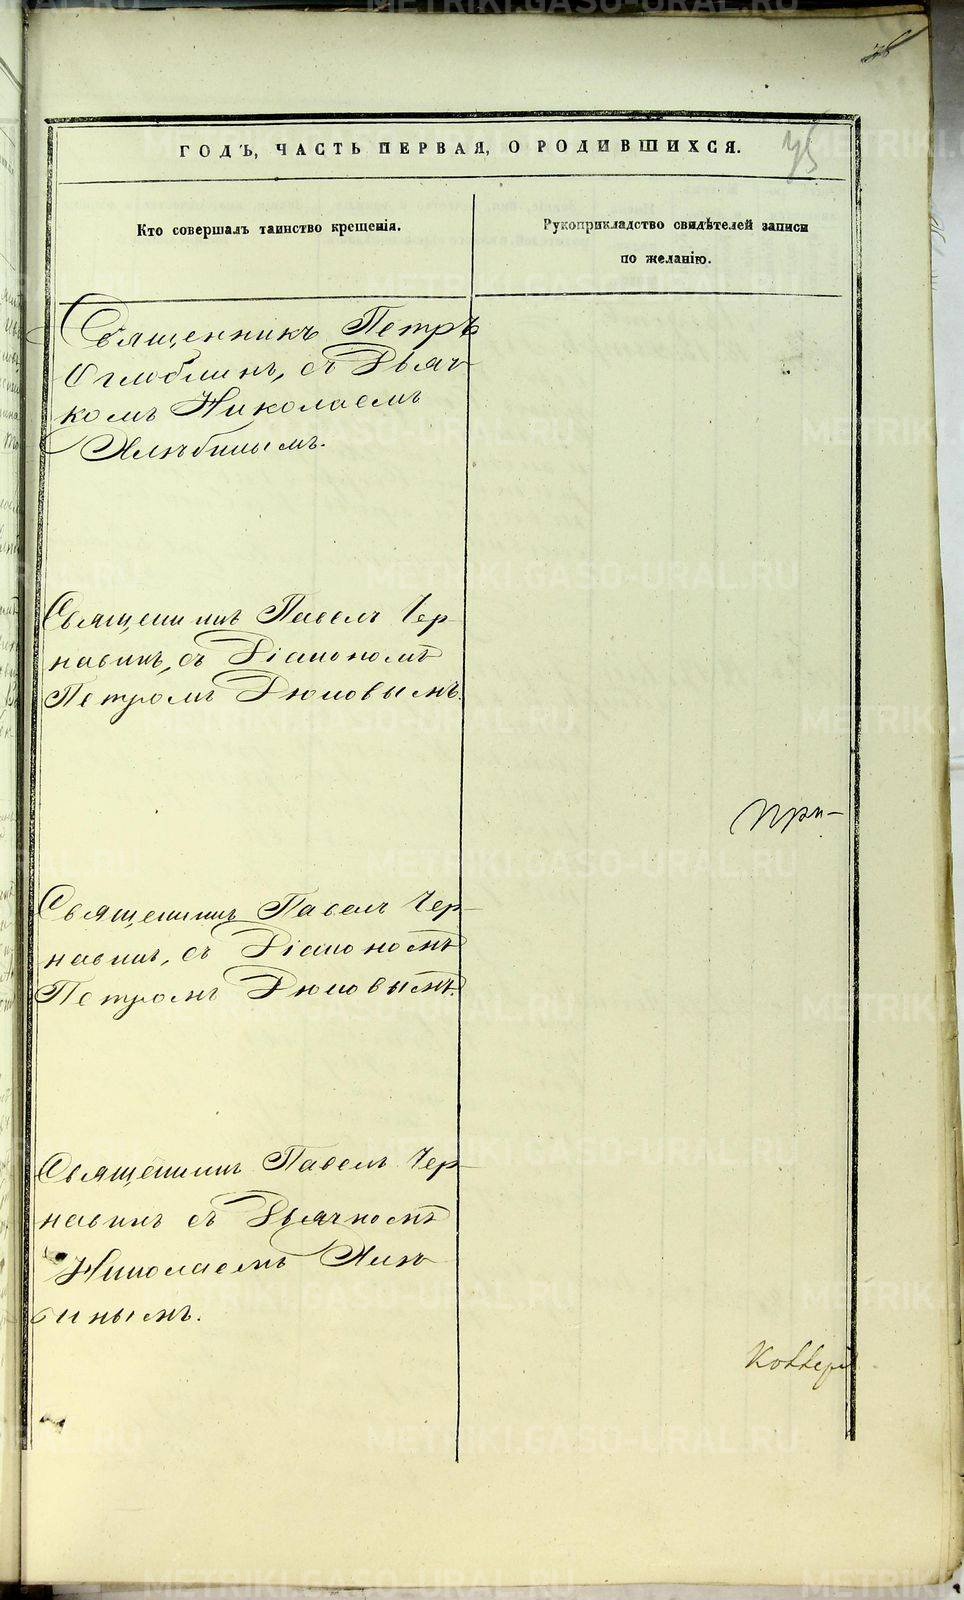 ГОДЪ, ЧАСТЬ ПЕРВАЯ, О РОДИВШИХСЯ.
Кто совершалъ таинство крещенія.
Рукоприкладство свидѣтелей записи
по желанію.
Священникъ Петръ
Оглоблинъ, съ Дьяч-
комъ Николаемъ
Священникъ Павелъ Чер-
навинъ, съ Діакономъ
Петромъ Дюковымъ.
При-
Священникъ Павелъ Чер-
навинъ, съ Діакономъ
Петромъ Дюковымъ.
Священникъ Павелъ Чер-
навинъ съ Дьячкомъ
Николаемъ
METRIKI.GASO-URAL.RU